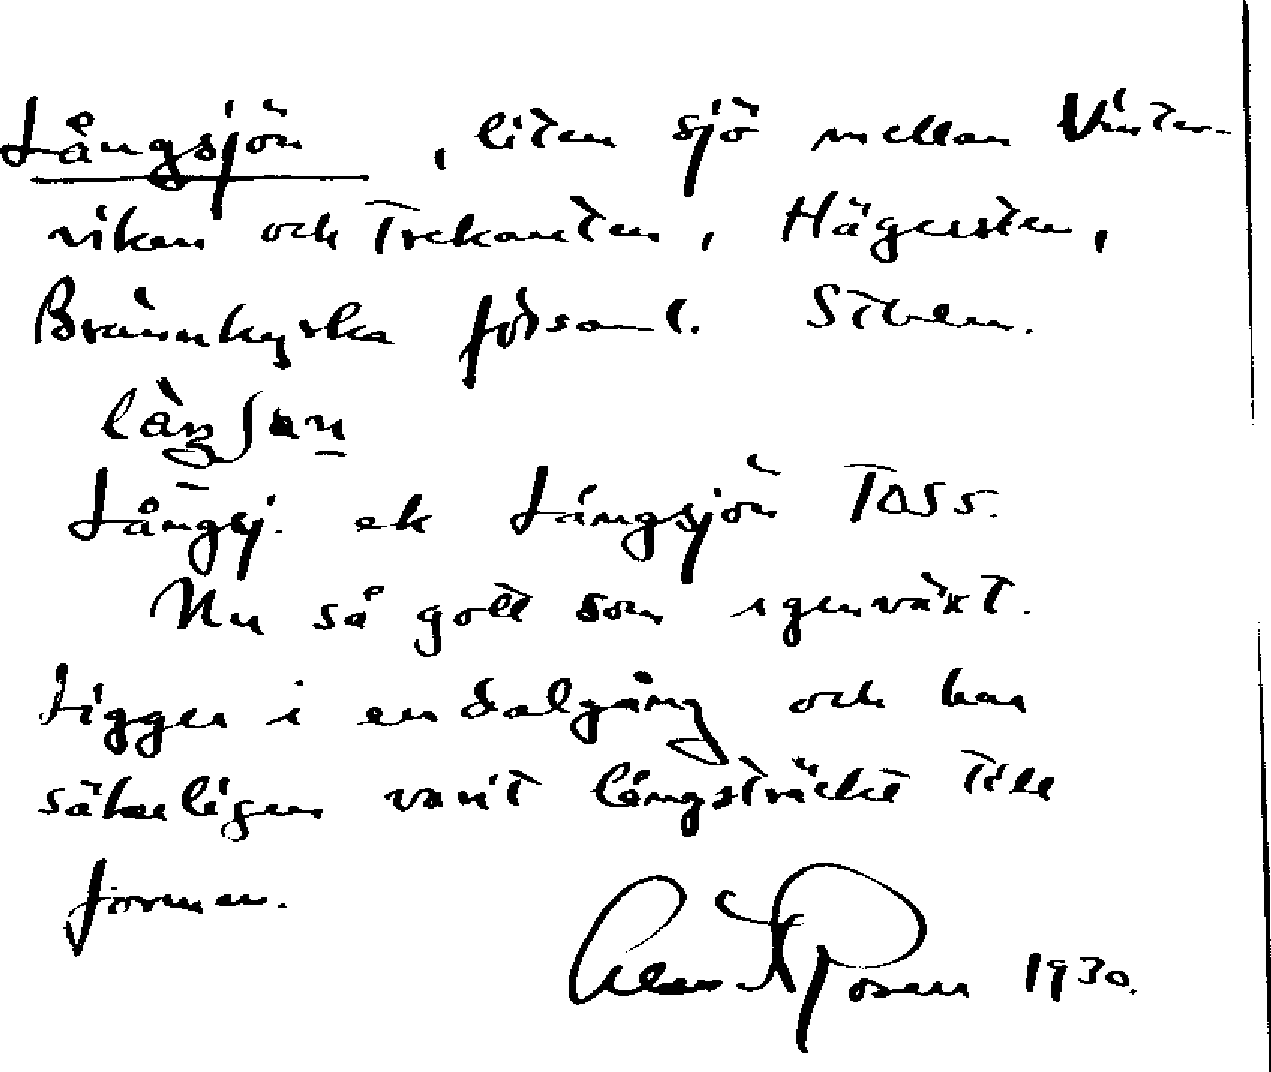 Långsjön, liten sjö mellan Vinter-
viken och Trekanten, Hägersten,
Brännkyrka förs aml. Sthlm.
Långsj. ek Långsjön TOSS.
Nu så gott som igenväxt.
Ligger i en dalgång och har
säkerligen varit långsträckt till
formen.
1930.